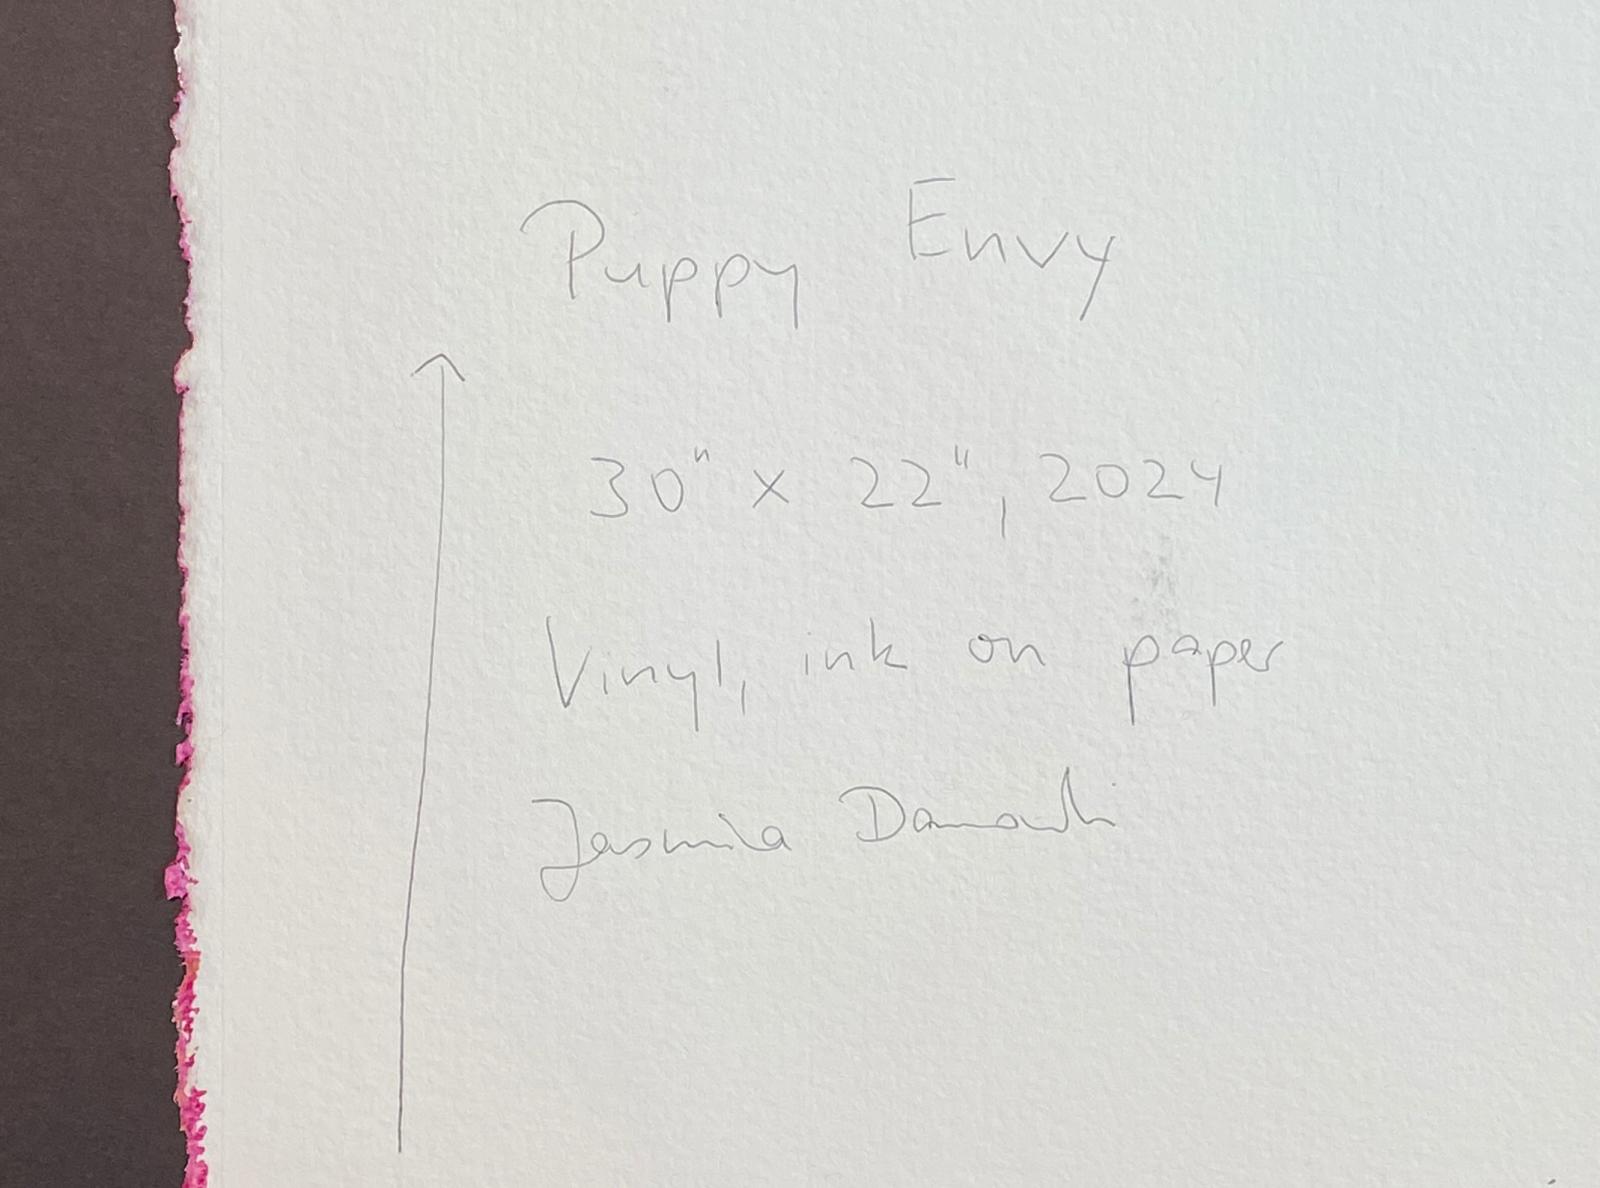 Puppy Envy
30" x 22", 2024
Vinyl, ink on paper
Jasmila